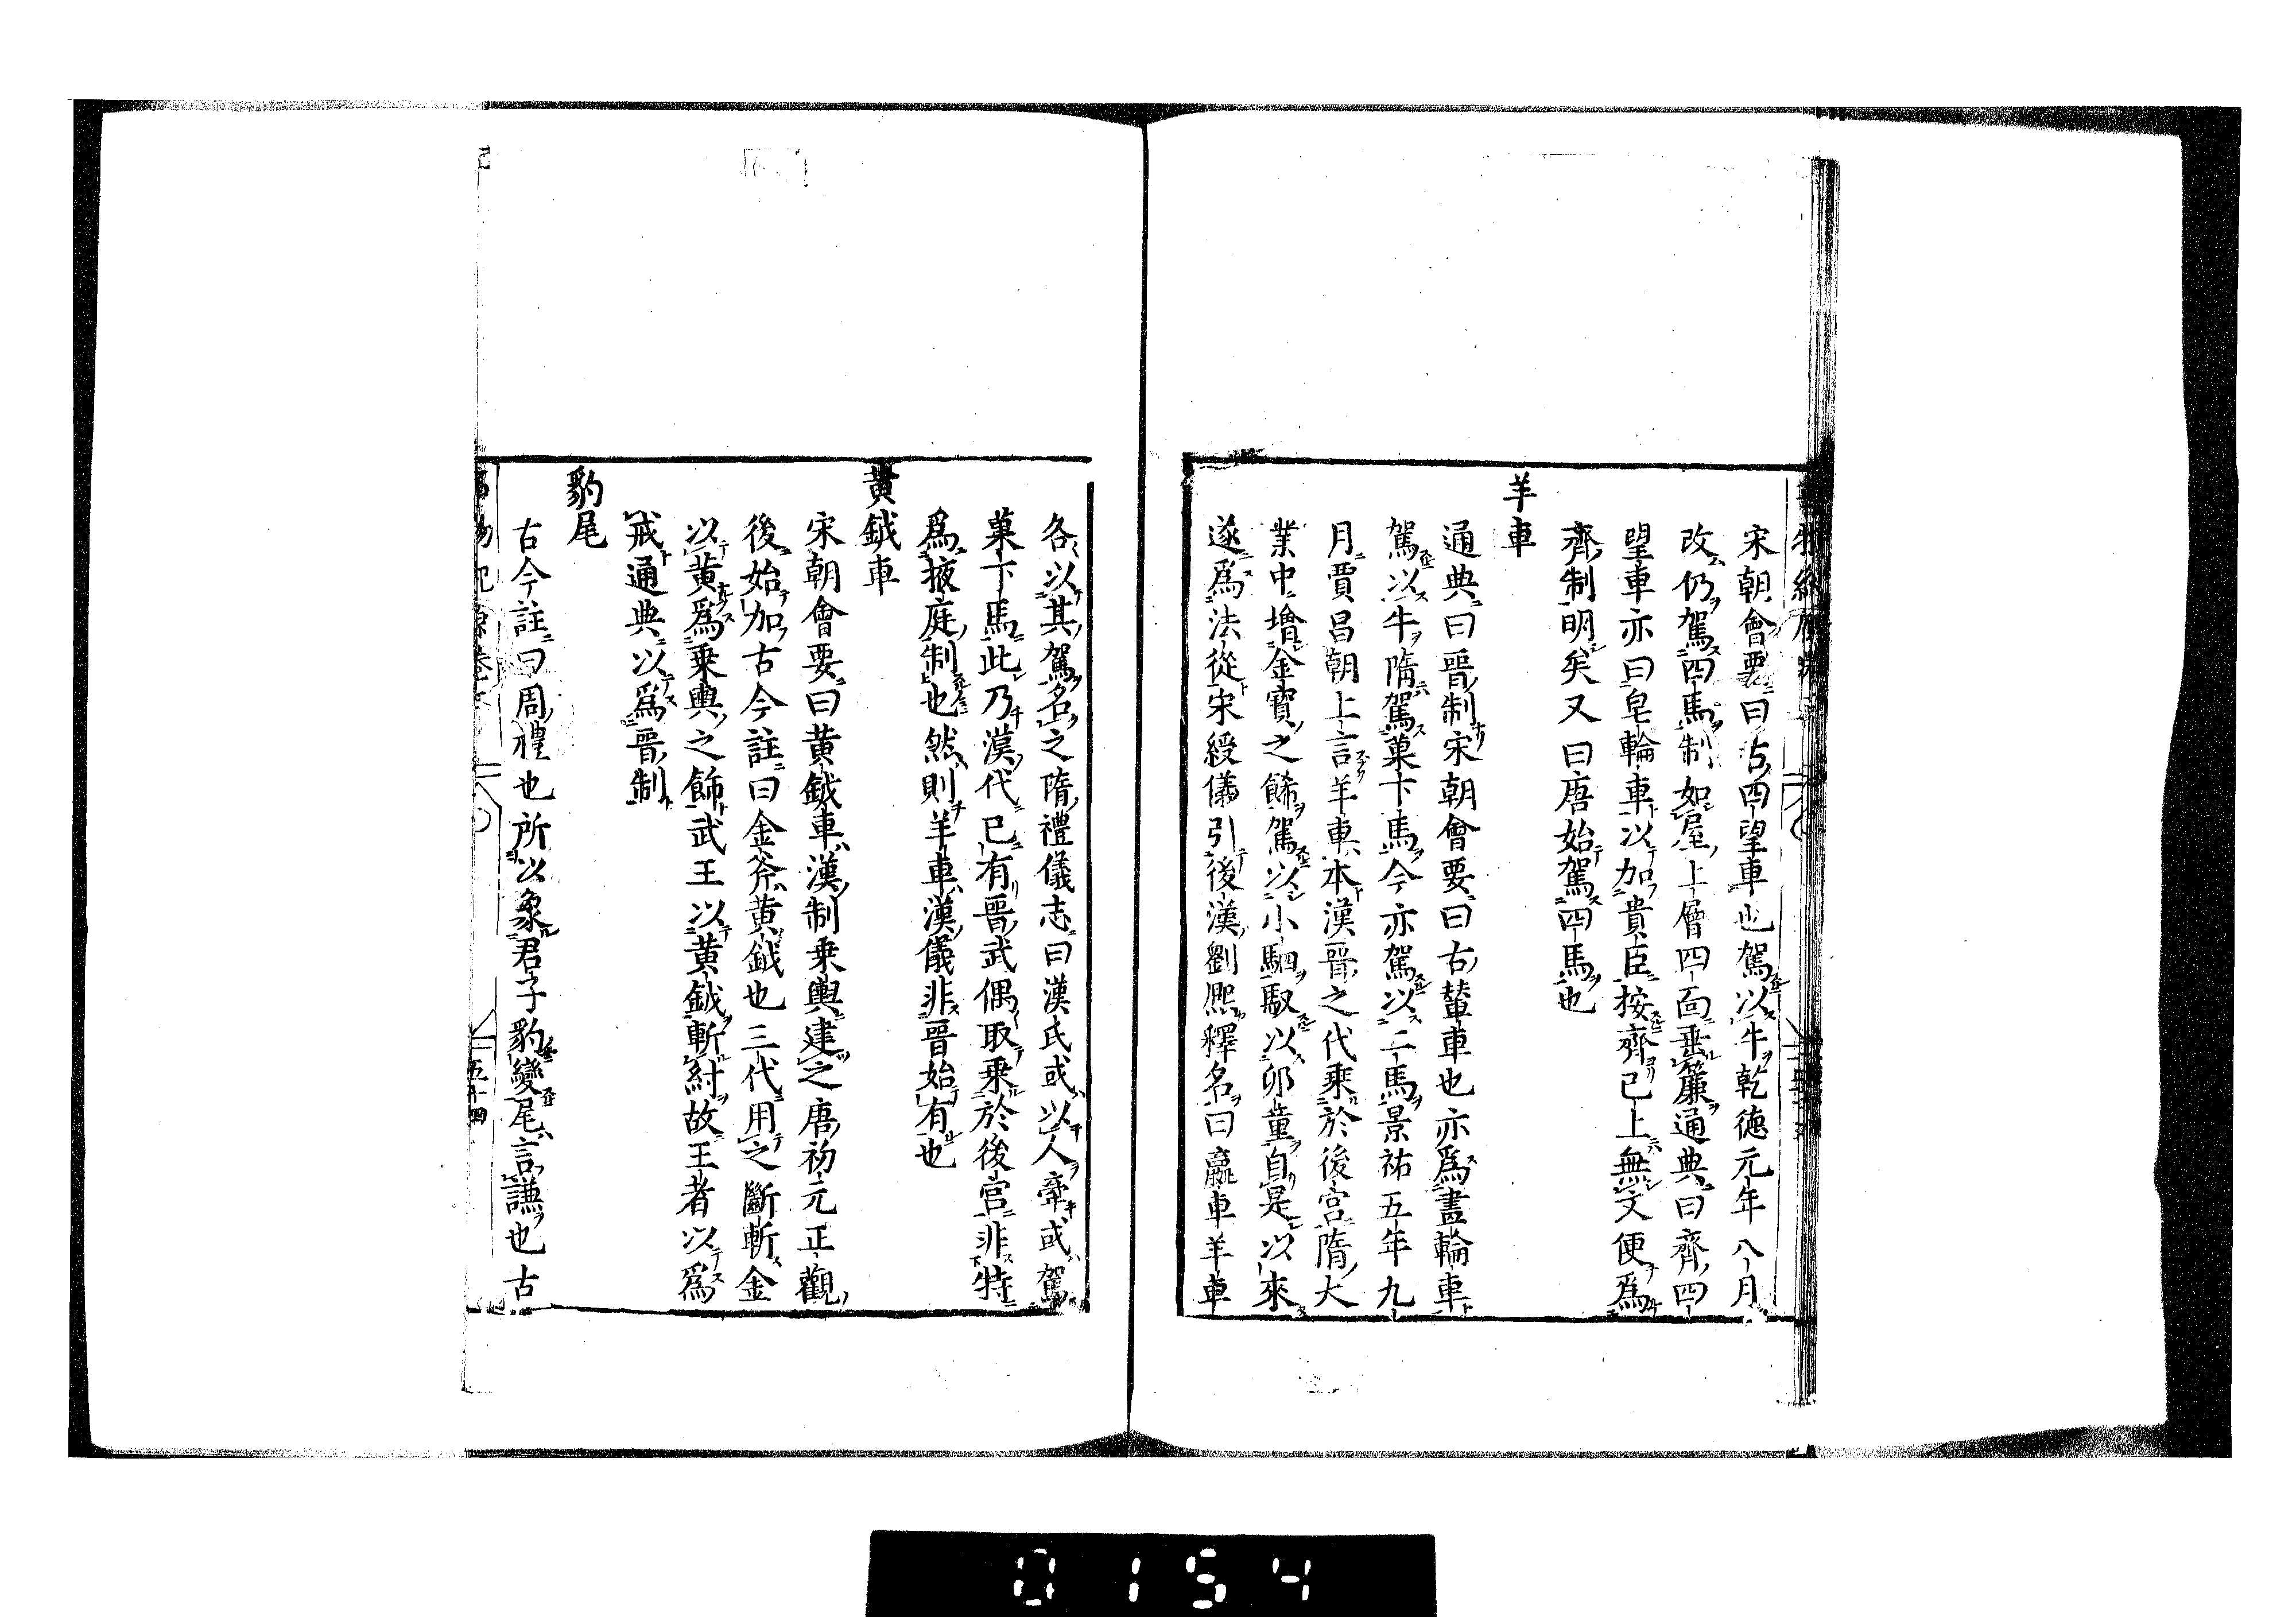 宋朝會要曰古四望車也駕以牛乾德元年八月
改仍駕四馬制如屋上層四面垂簾通典曰齊四
望車亦曰皂輪車以加貴臣按齊已上無文便爲
齊制明矣又曰唐始駕四馬也
羊車
通典曰晉制宋朝會要曰古輦車也亦爲畫輪車
駕以牛隋駕菓下馬今亦駕以二馬景祐五年九
月賈昌朝上言羊車本漢晉之代乘於後宮隋大
業中增金寶之餙駕以小駟馭以丱童自是以來
遂爲法從宋綬儀引後漢劉熙釋名曰羸車羊車
各以其駕名之隋禮儀志曰漢氏或以人牽或駕
菓下馬此乃漢代已有晉武偶取乘於後宮非特
爲掖庭制也然則羊車漢儀非晉始有也
黃鉞車
宋朝會要曰黃鉞車漢制乗輿建之唐初元正觀
後始加古今註曰金斧黃鉞也三代用之斷斬金
以黃爲乗輿之飾武王以黃鉞斬紂故王者以爲
戒通典以爲晉制
豹尾
古今註曰周禮也所以象君子豹變尾言謙也古
五十四
0154